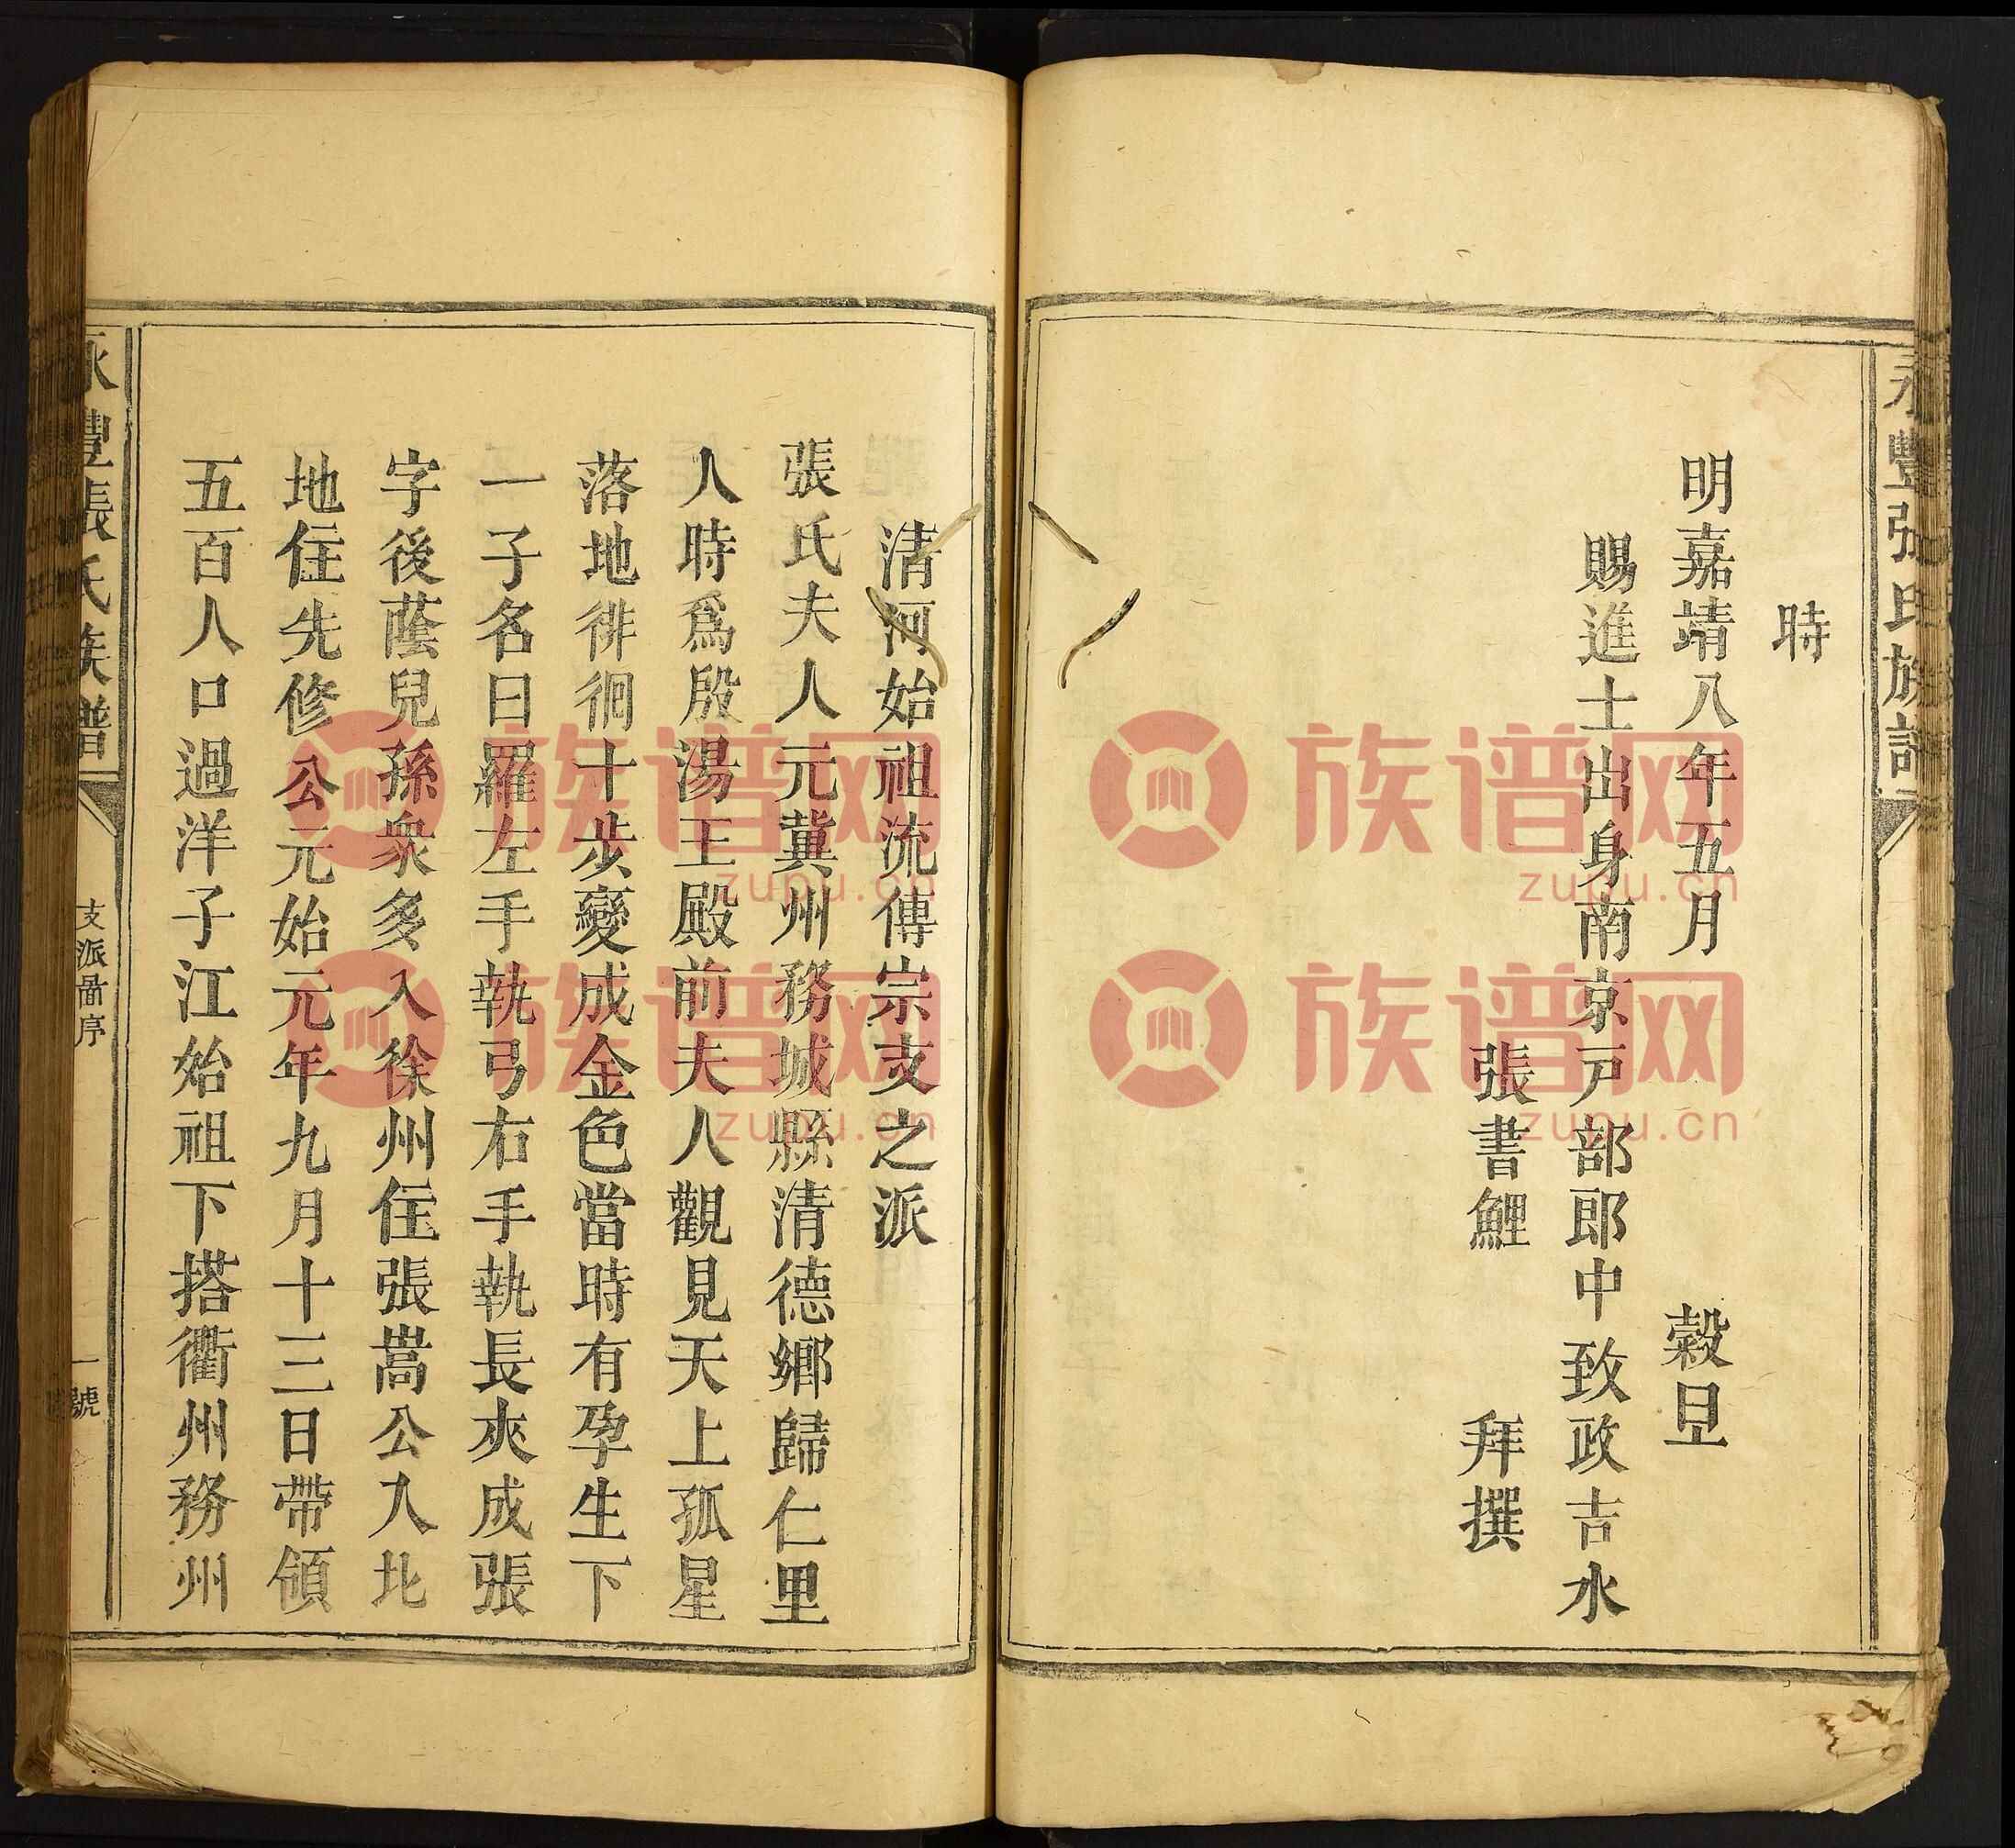 永豐張氏族譜
時
明嘉靖八年五月 穀旦
賜進士出身南京戸部郎中致政吉水
張書鯉 拜撰
清河始祖流傳宗支之派
張氏夫人元冀州務城縣清德鄉歸仁里
人時爲殷湯王殿前夫人觀見天上孤星
落地徘徊十步變成金色當時有孕生下
一子名曰羅左手執弓右手執長夾成張
字後蔭兒孫衆多入徐州住張嵩公入北
地住先修公元始元年九月十三日帶領
五百人口過洋子江始祖下搭衢州務州
永豐張氏族譜
支派啚序
一號
族谱网
zupu.cn
族谱网
zupu.cn
族谱网
zupu.cn
族谱网
zupu.cn